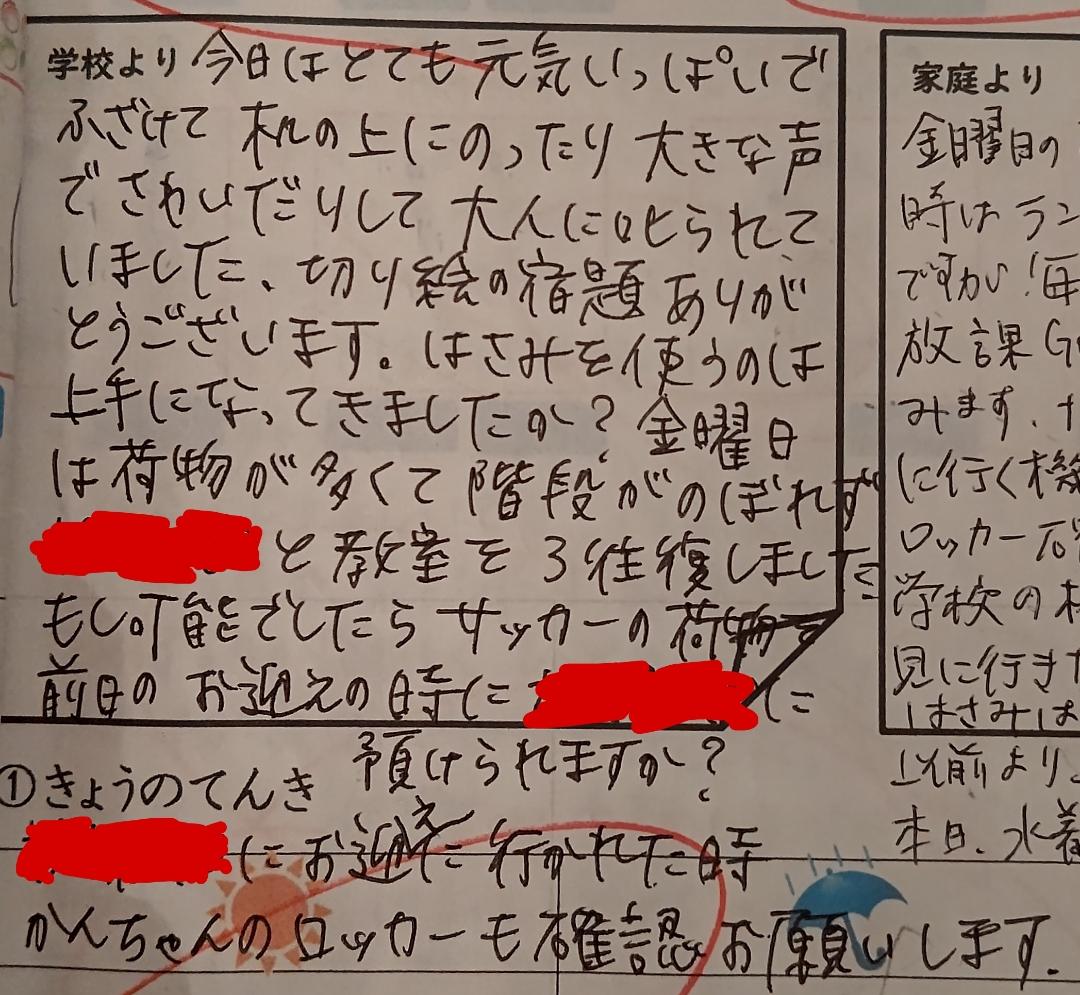 学校より 今日はとても元気いっぱいで
ふざけて 机の上にのったり 大きな声
で さわいだりして 大人に叱られて
いました、切り絵の宿題ありが
とうございます。はさみを使うのは
上手になってきましたか? 金曜日
は荷物が多くて 階段がのぼれず
と教室を3往復しました
もし可能でしたら サッカーの荷物
前日の お迎えの時に に
預けられますか?
①きょうのてんき
にお迎えに行かれた時
かんちゃんのロッカーも確認お願いします.
家庭より
金曜日の
時はラン
ですかい!毎
放課G
みます.
に行く機
ロッカー
学校の
見に行き
はさみは
以前より、
本日、水着